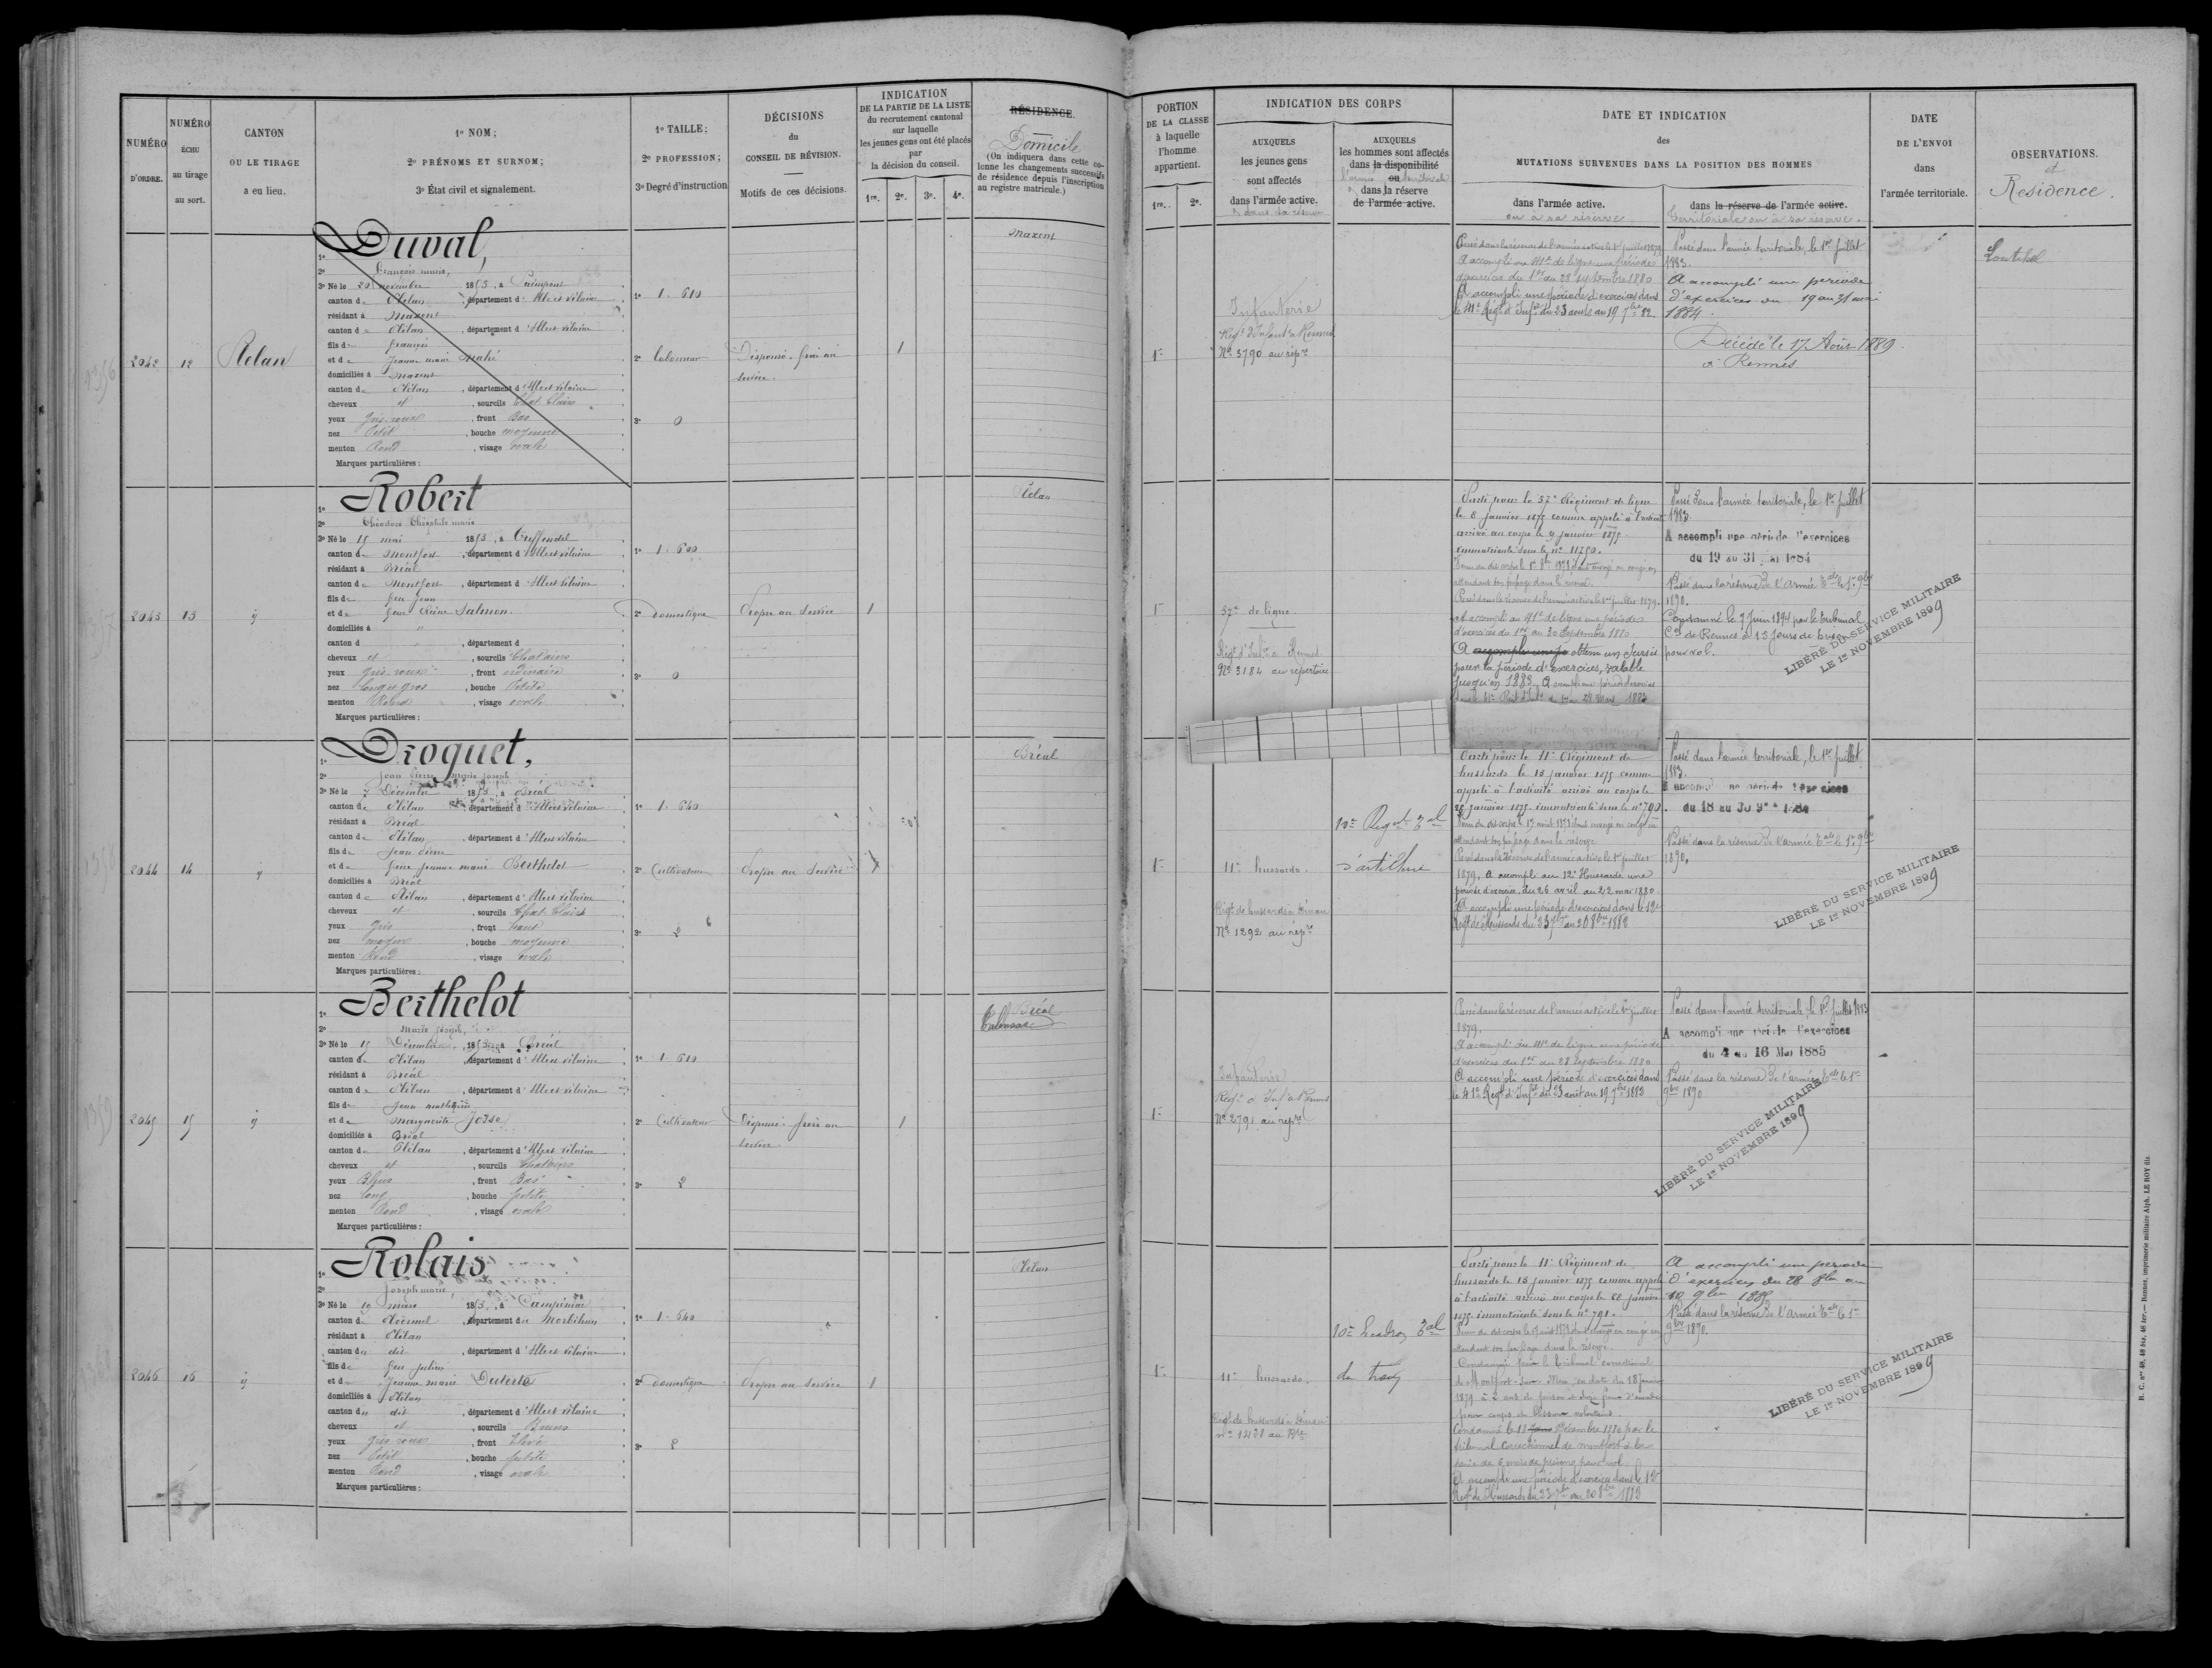 NUMÉRO
D'ORDRE.
NUMÉRO
ÉCHU
au tirage
au sort.
CANTON
OU LE TIRAGE
a eu lieu.
1º NOM;
2º PRÉNOMS ET SURNOM;
3º État civil et signalement.
1º TAILLE;
2º PROFESSION;
3º Degré d'instruction
DÉCISIONS
du
CONSEIL DE RÉVISION.
Motifs de ces décisions.
INDICATION
DE LA PARTIE DE LA LISTE
du recrutement cantonal
sur laquelle
les jeunes gens ont été placés
par
la décision du conseil.
1re. 2e. 3e. 4e.
RÉSIDENCE.
Domicile
(On indiquera dans cette co-
lonne les changements successifs
de résidence depuis l'inscription
au registre matricule.)
PORTION
DE LA CLASSE
à laquelle
l'homme
appartient.
1re. 2e.
INDICATION DES CORPS
AUXQUELS
les jeunes gens
sont affectés
dans l'armée active.
& dans sa réserve
AUXQUELS
les hommes sont affectés
dans la disponibilité
ou
dans la réserve
de l'armée active.
DATE ET INDICATION
des
MUTATIONS SURVENUES DANS LA POSITION DES HOMMES
dans l'armée active.
ou à sa réserve
dans la réserve de l'armée active.
territoriale ou à sa réserve.
DATE
DE L'ENVOI
dans
l'armée territoriale.
OBSERVATIONS.
et
Residence.
2042 12 Plélan
1º Duval,
2º François marie,
3º Né le 20 novembre 1853, à Paimpont
canton de Plélan, département d'Ille et Vilaine
résidant à Maxent
canton de Plélan, département d'Ille et Vilaine
fils de françois
et de Jeanne marie Mahé
domiciliés à Maxent
canton de Plélan, département d'Ille et Vilaine
cheveux et, sourcils Chat. Clairs
yeux Gris roux, front Bas
nez Petit, bouche moyenne
menton Rond, visage ovale
Marques particulières :
1º 1.610
2º laboureur
3º 0
Dispensé. frère au
service.
1
Maxent
1re
Infanterie
Régt d'Infant à Rennes
Nº 3790 au répre
Passé dans la réserve de l'armée active le 1er juillet 1879
A accompli au 41e de ligne une période
d'exercices du 1er au 28 septembre 1880
A accompli une période d'exercices dans
le 41e Régt d'Infie du 23 août au 19 7bre 82.
Passé dans l'armée territoriale, le 1er juillet
1883.
A accompli une période
d'exercices du 19 au 31 mai
1884.
Décédé le 17 Août 1889
à Rennes
2043 13
1º Robert
2º Théodore Théophile marie
3º Né le 15 mai 1853, à Treffendel
canton de Montfort, département d'Ille et Vilaine
résidant à Bréal
canton de Montfort, département d'Ille et Vilaine
fils de feu Jean
et de feue Reine Salmon.
domiciliés à "
canton d , département d
cheveux et, sourcils Chatains
yeux gris roux, front ordinaire
nez long et gros, bouche Petite
menton Rond, visage ovale
Marques particulières :
1º 1.600
2º domestique
3º 0
Propre au service
1
Plélan
1re
57e de ligne
Régt d'Infie à Rennes
Nº 3184 au répertoire
Parti pour le 57e Régiment de ligne
le 8 janvier 1875 comme appelé à l'activité
arrivé au corps le 9 janvier 1875
immatriculé sous le nº 11750.
attendant son passage dans la réserve.
Passé dans la réserve de l'armée active le 1er juillet 1879.
A accompli au 41e de ligne une période
d'exercices du 1er au 30 Septembre 1880
A accompli une p obtenu un sursis
pour la période d'exercices, valable
jusqu'en 1883.
Passé dans l'armée territoriale, le 1er juillet
1883.
A accompli une période d'exercices
du 19 au 31 mai 1884
Passé dans la réserve de l'Armée Tale le 1er 9bre
1890.
Condamné le 7 Juin 1894 par le tribunal
Cel de Rennes à 15 jours de prison
pour vol.
LIBÉRÉ DU SERVICE MILITAIRE
LE 1er NOVEMBRE 1899
2044 14
1º Droguet,
2º Jean Pierre Marie Joseph
3º Né le 7 Décembre 1853, à Bréal
canton de Plélan, département d'Ille et Vilaine
résidant à Bréal
canton de Plélan, département d'Ille et Vilaine
fils de Jean Pierre
et de feue Jeanne marie Berthelot
domiciliés à Bréal
canton de Plélan, département d'Ille et Vilaine
cheveux et, sourcils Chat. Clairs
yeux Gris, front haut
nez moyen, bouche moyenne
menton Rond, visage ovale
Marques particulières :
1º 1.640
2º Cultivateur
3º 2
Propre au service
1
Bréal
1re
11e hussards.
Régt de hussards à Dinan
Nº 1292 au répre
10e Régnt Tal
d'artillerie
Parti pour le 11e Régiment de
hussards le 15 janvier 1875 comme
appelé à l'activité arrivé au corps le
20 janvier 1875. immatriculé sous le nº 790.
attendant son passage dans la réserve
Passé dans la Réserve de l'armée active le 1er juillet
1879. A accompli au 12e Hussards une
période d'exercices du 26 avril au 22 mai 1880
A accompli une période d'exercices dans le 12e
Régt de Hussards du 23 7bre au 20 8bre 1882
Passé dans l'armée territoriale, le 1er juillet
1883.
du 18 au 30 9bre 1884
Passé dans la réserve de l'armée Tale le 1er 9bre
1890.
LIBÉRÉ DU SERVICE MILITAIRE
LE 1er NOVEMBRE 1899
2045 15
1º Berthelot
2º Marie Joseph,
3º Né le 15 Décembre 1853, à Bréal
canton de Plélan, département d'Ille et Vilaine
résidant à Bréal
canton de Plélan, département d'Ille et Vilaine
fils de Jean mathurin
et de Marguerite Josse
domiciliés à Bréal
canton de Plélan, département d'Ille et Vilaine
cheveux et, sourcils Chatains
yeux Bleus, front Bas
nez long, bouche petite
menton Rond, visage ovale
Marques particulières :
1º 1.610
2º Cultivateur
3º 2
Dispensé. frère au
service.
1
Bréal
1re
Infanterie
Régt d'Inf à Rennes
Nº 2791 au répre
Passé dans la réserve de l'armée active le 1er juillet
1879.
A accompli au 41e de ligne une période
d'exercices du 1er au 28 Septembre 1880
A accompli une période d'exercices dans
le 41e Régt d'Infie du 23 août au 19 7bre 1882
Passé dans l'armée territoriale, le 1er juillet 1883
A accompli une période d'exercices
du 4 au 16 Mai 1885
Passé dans la réserve de l'armée Tale le 1er
9bre 1890
LIBÉRÉ DU SERVICE MILITAIRE
LE 1er NOVEMBRE 1899
2046 16
1º Rolais
2º Joseph marie,
3º Né le 19 mars 1853, à Campénéac
canton de Ploermel, département du Morbihan
résidant à Plélan
canton du dit, département d'Ille et Vilaine
fils de feu Julien
et de Jeanne marie Duterte
domiciliés à Plélan
canton du dit, département d'Ille et Vilaine
cheveux et, sourcils Bruns
yeux gris roux, front Elevé
nez Petit, bouche petite
menton Rond, visage ovale
Marques particulières :
1º 1.640
2º domestique
3º 2
Propre au service
1
Plélan
1re
11e hussards.
Régt de hussards à Dinan
10e Escadron Tal
du train
Parti pour le 11e Régiment de
hussards le 15 janvier 1875 comme appelé
à l'activité arrivé au corps le 20 janvier
1875 immatriculé sous le nº 791.
attendant son passage dans la réserve.
Condamné par le tribunal correctionnel
de Montfort-sur-Meu, en date du 18 janvier
pour coups et blessures volontaires.
Condamné le 18 Décembre 1880 par le
tribunal Correctionnel de Montfort à la
peine de 6 mois de prison, pour vol
A accompli une période d'exercices dans le 12e
Régt de Hussards du 23 7bre au 20 8bre 1882
A accompli une période
d'exercices du 28 8bre au
10 9bre 1889
Passé dans la réserve de l'Armée Tale le 1er
9bre 1890.
LIBÉRÉ DU SERVICE MILITAIRE
LE 1er NOVEMBRE 1899
R. C. nos 46, 46 bis, 46 ter. — Rennes, imprimerie militaire Alph. LE ROY fils.